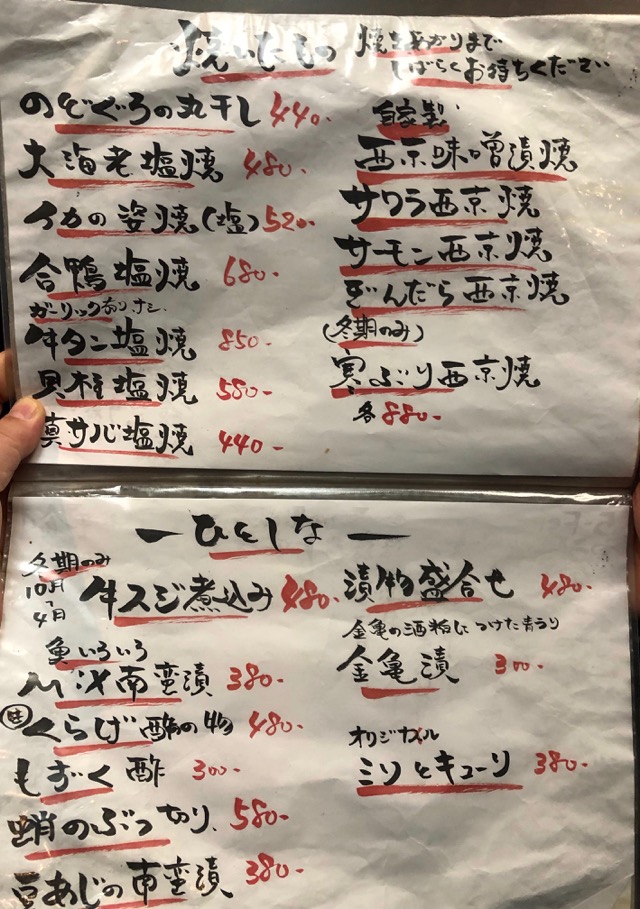 焼いたもの
焼きあがりまで
しばらくお待ちください
のどぐろの丸干し 440-
大海老塩焼 480-
イカの姿焼(塩) 520-
合鴨塩焼 680-
ガーリック
牛タン塩焼 850-
貝柱塩焼 580-
真サバ塩焼 440-
自家製
西京味噌漬焼
サワラ西京焼
サーモン西京焼
ぎんだら西京焼
(冬期のみ)
寒ぶり西京焼
各880-
ーひとしなー
冬期のみ
10月
〜
4月
牛スジ煮込み 480-
魚いろいろ
南蛮漬 380-
くらげ酢の物 480-
もずく酢 300-
蛸のぶつ切り 580-
豆あじの南蛮漬 380-
漬物盛合せ 480-
金亀の酒粕につけた青うり
金亀漬 300-
オリジナル
ミソとキューリ 380-